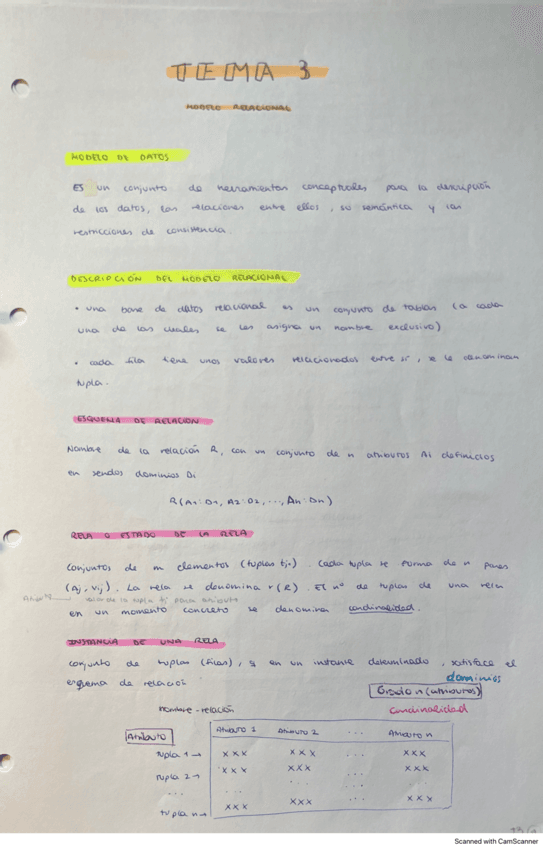 TEMA 3
MODELO RELACIONAL
MODELO DE DATOS
ES un conjunto de herramientas conceptuales para la descripción
de los datos, las relaciones entre ellos, su semántica y las
restricciones de consistencia.
DESCRIPCIÓN DEL MODELO RELACIONAL
• una base de datos relacional es un conjunto de tablas (a cada
una de las cuales se les asigna un nombre exclusivo)
• cada fila tiene unos valores relacionados entre sí, se le denominan
tupla.
ESQUEMA DE RELACIÓN
Nombre de la relación R, con un conjunto de n atributos Ai definidos
en sendos dominios Di
R(A1:D1, A2:D2, ..., An:Dn)
RELA O ESTADO DE LA RELA
Conjuntos de m elementos (tuplas tj). Cada tupla se forma de n pares
(Aj, Vij). La rela se denomina r(R). El nº de tuplas de una rela
de la tupla tj para atributo
en un momento concreto se denomina cardinalidad.
INSTANCIA DE UNA RELA
conjunto de tuplas (filas), q en un instante determinado, satisface el
esquema de relació
dominios
Grado n (atributos)
nombre-relación
cardinalidad
Atributo
Atributo 1 Atributo 2 ... Atributo n
tupla 1 → xxx xxx ... xxx
tupla 2 → xxx xxx ... xxx
... ...
tupla n → xxx xxx ... xxx
Scanned with CamScanner